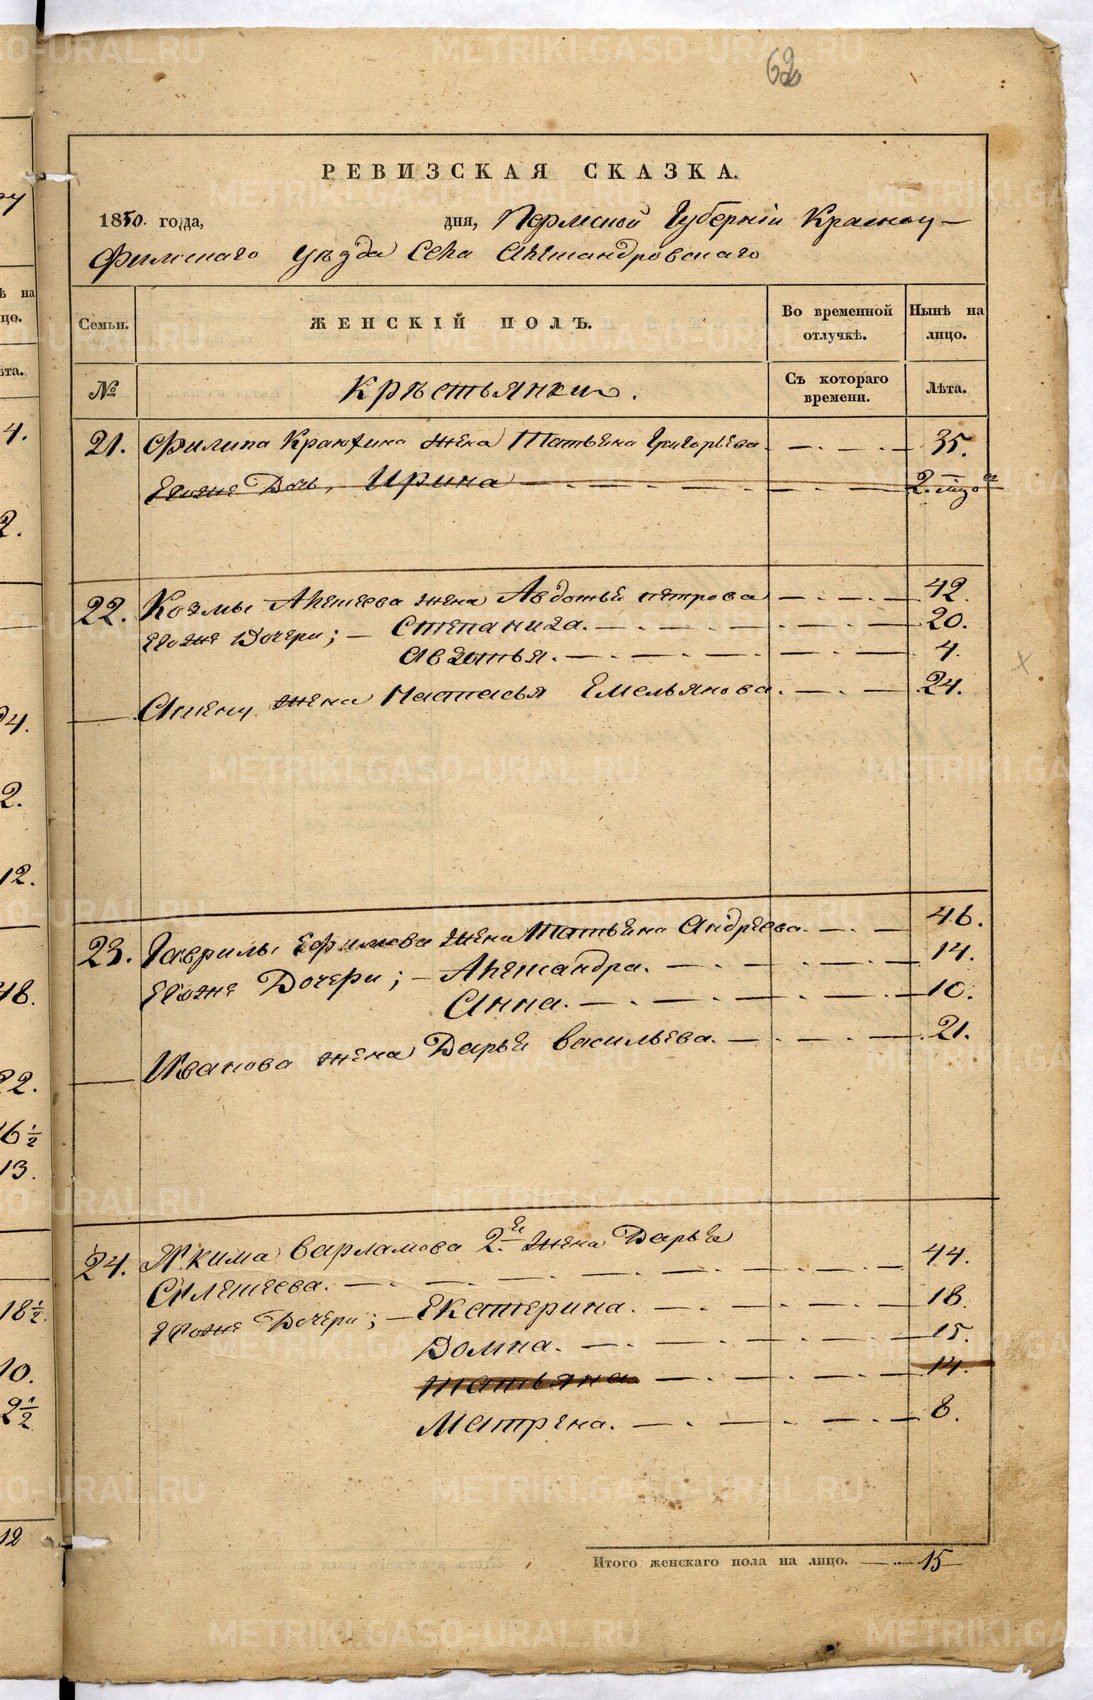 62
РЕВИЗСКАЯ СКАЗКА.
1850. года, дня, Пермской Губернiи Красноу-
фимскаго уѣзда Села Александровскаго
Семьи. ЖЕНСКIЙ ПОЛЪ. Во временной отлучкѣ. Нынѣ на лицо.
№ Крестьянки. Съ котораго времени. Лѣта.
21. Филипа жена Татьяна Григорьева. 35.
Его же Дочь, Ирина 2.
22. Козмы Алексеева жена Авдотья петрова 42.
его же Дочери; - Степанида. 20.
Авдотья. 4.
жена Настасья Емельянова. 24.
23. Гаврилы Ефимова жена Татьяна Андреева. 46.
Его же Дочери; - Александра. 14.
Анна. 10.
Иванова жена Дарья Васильева. 21.
24. Якима Варламова 2.я жена Дарья
44.
его же Дочери; - Екатерина. 18.
Домна. 15.
Татьяна 14.
Матрена. 8.
Итого женскаго пола на лицо. 15
4.
2.
24.
2.
12.
48.
22.
16 1/2
13.
18 1/2.
10.
2 1/2
12
METRIKI.GASO-URAL.RU